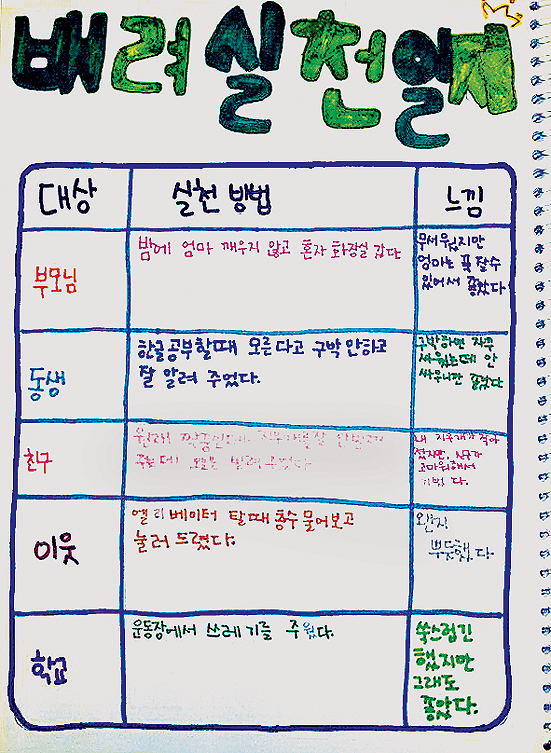 배려 실천 일지
대상 실천 방법 느낌
부모님
밤에 엄마 깨우지 않고 혼자 화장실 갔다
무서웠지만
엄마는 푹 잘수
있어서 좋았다
동생
한글공부할때 모른다고 구박 안하고
잘 알려 주었다.
구박하면 자주
싸웠는데 안
싸우니깐 좋았다
친구
원래 지우개를 잘 안빌려
주는데 오늘은 빌려 주었다
내 지우개가 작아
졌지만, 친구가
고마워해서
기뻤다.
이웃
엘리베이터 탈때 층수 물어보고
눌러 드렸다.
왠지
뿌듯했다
학교
운동장에서 쓰레기를 주웠다.
쑥스럽긴
했지만
그래도
좋았다.